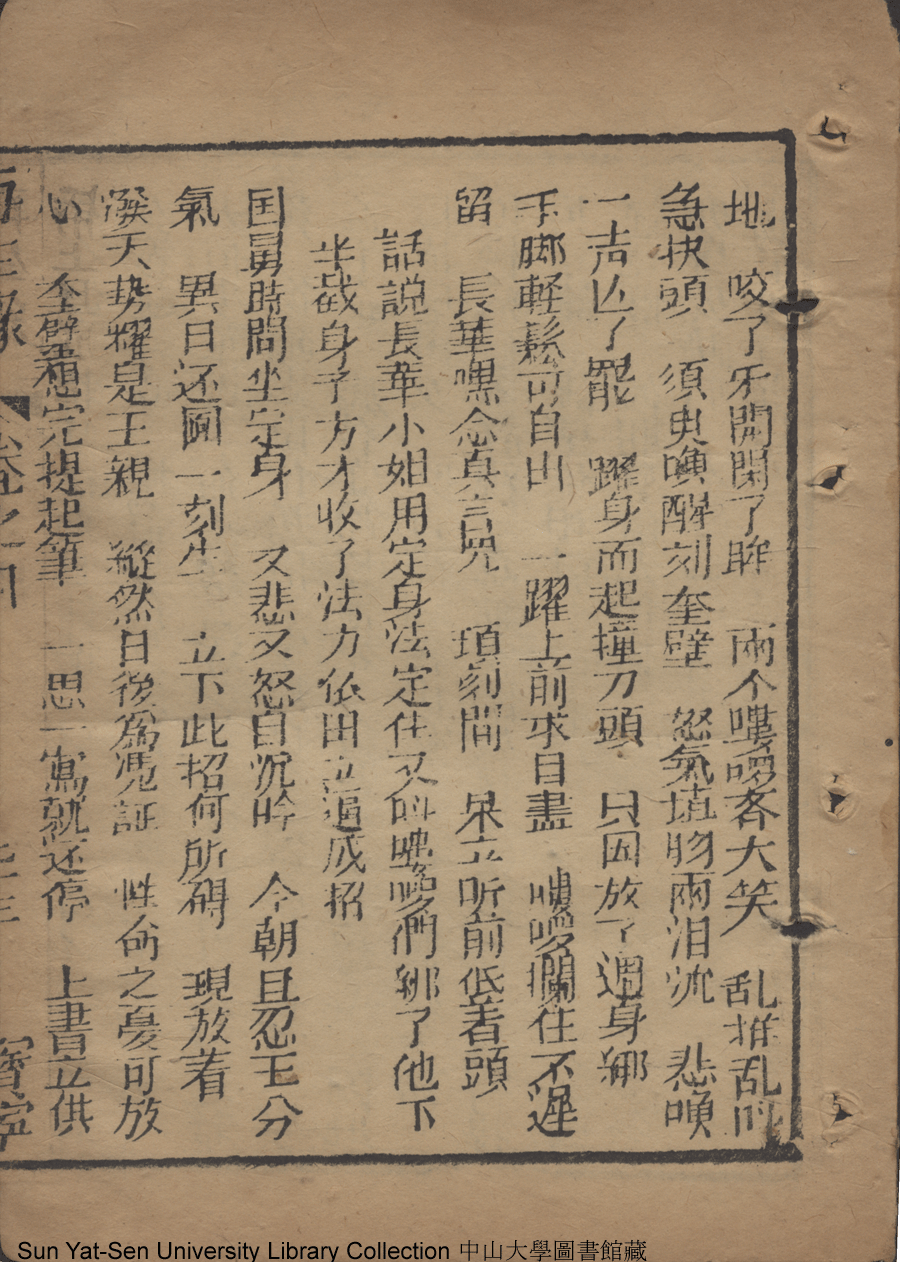 地　咬了牙関閉了眸　兩个嘍啰吝大笑　乱推乱叫
急快頭　須臾喚醒刻奎壁　怒氣填胸兩泪沉　悲喚
一声㐫了罷　躍身而起撞刀頭　只因放了週身綁
手脚軽鬆可自由　一躍上前求自盡　嘍啰攔住不遲
留　長華嘿念真言咒　頃刻間　呆立听前低着頭
話説長華小姐用定身法定住又叫嘍啰們綁了他下
半截身子方才收了法力依旧立逼成招
国舅時間坐定身　又悲又怒自沉吟　今朝且忍三分
氣　異日还圖一刻生　立下此招何所碍　現放着
潑天势耀是王親　縱然日後為凴証　性命之憂可放
心　奎壁想完提起筆　一思一寫就还停　上書立供
Sun Yat-Sen University Library Collection 中山大學圖書館藏